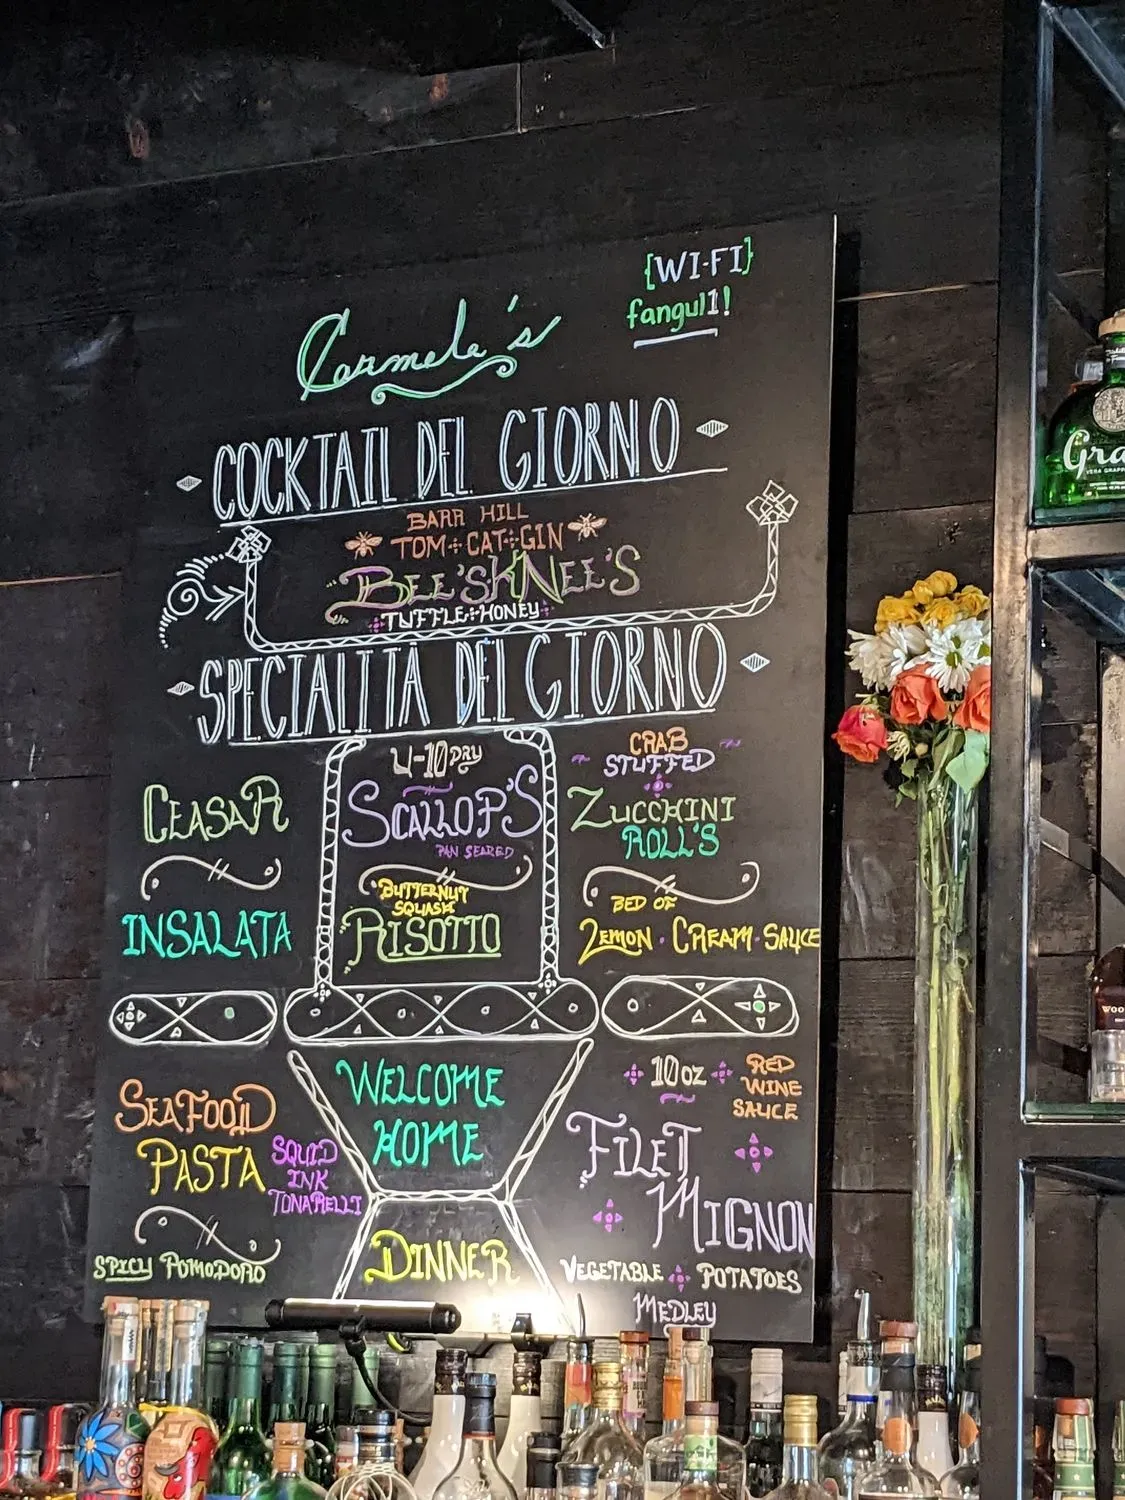 {WI-FI}
fangul1!
Carmela's
COCKTAIL DEL GIORNO
BARR HILL
TOM CAT GIN
BEE'S KNEE'S
TUFFLE HONEY
SPECIALITÀ DEL GIORNO
CEASAR
INSALATA
U-10 DRY
SCALLOP'S
PAN SEARED
BUTTERNUT
SQUASH
RISOTTO
CRAB
STUFFED
ZUCCHINI
ROLL'S
BED OF
LEMON · CREAM · SAUCE
SEAFOOD
PASTA
SQUID
INK
TONARELLI
SPICY POMODORO
WELCOME
HOME
DINNER
10oz
RED
WINE
SAUCE
FILET
MIGNON
VEGETABLE POTATOES
MEDLEY
Gra
WOO